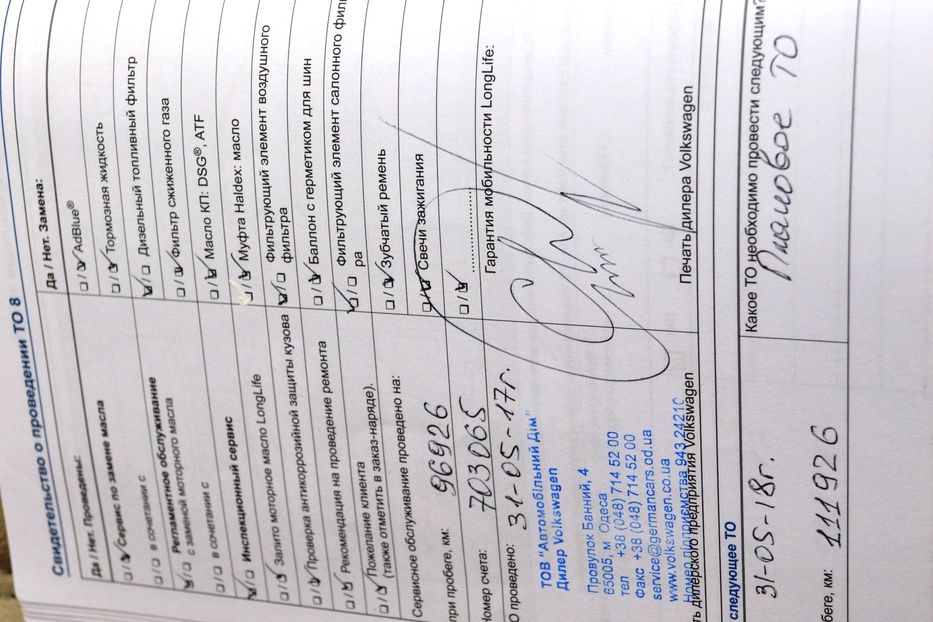 Свидетельство о проведении ТО 8
Да / Нет. Проведены:
Сервис по замене масла
в сочетании с
Регламентное обслуживание
с заменой моторного масла
в сочетании с
Инспекционный сервис
Залито моторное масло LongLife
Проверка антикоррозийной защиты кузова
Рекомендация на проведение ремонта
Пожелание клиента
(также отметить в заказ-наряде).
Сервисное обслуживание проведено на:
при пробеге, км: 96926
номер счета: 703065
О проведено: 31-05-17г.
ТОВ "Автомобільний Дім"
Дилер Volkswagen
Провулок Банний, 4
65005, м. Одеса
тел +38 (048) 714 52 00
факс +38 (048) 714 52 00
service@germancars.od.ua
www.volkswagen.co.ua
943 2421С
ть дилерского предприятия Volkswagen
Да / Нет. Замена:
AdBlue®
Тормозная жидкость
Дизельный топливный фильтр
Фильтр сжиженного газа
Масло КП: DSG®, ATF
Муфта Haldex: масло
Фильтрующий элемент воздушного
фильтра
Баллон с герметиком для шин
Фильтрующий элемент салонного фил
ра
Зубчатый ремень
Свечи зажигания
Гарантия мобильности LongLife:
Печать дилера Volkswagen
следующее ТО
31-05-18г.
беге, км: 111926
Какое ТО необходимо провести следующим?
Плановое ТО